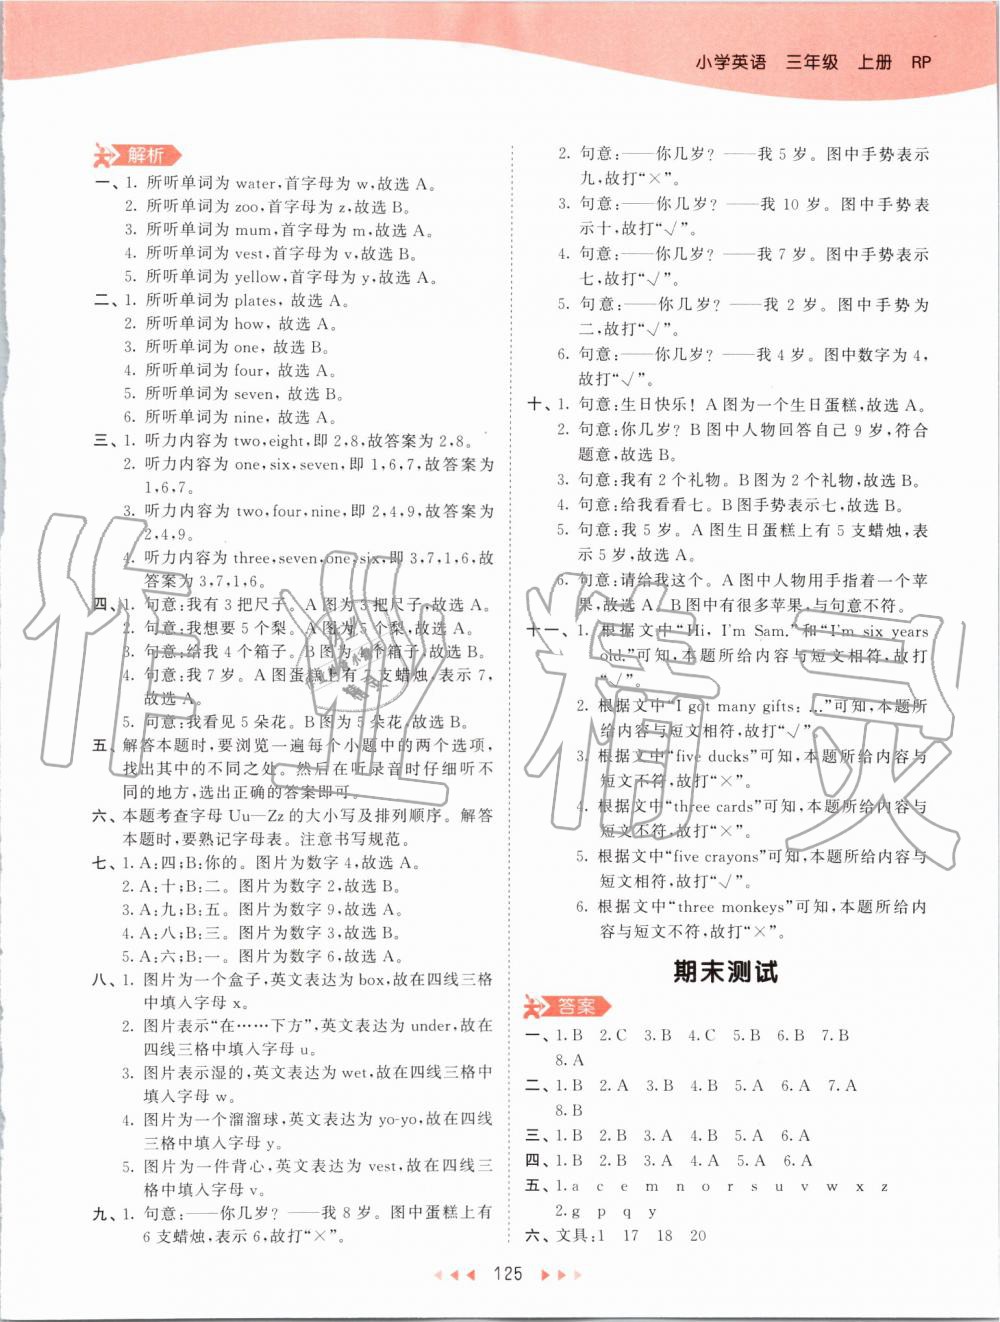 小学英语 三年级 上册 RP
解析
一、1. 所听单词为 water,首字母为 w,故选 A。
2. 所听单词为 zoo,首字母为 z,故选 B。
3. 所听单词为 mum,首字母为 m,故选 A。
4. 所听单词为 vest,首字母为 v,故选 B。
5. 所听单词为 yellow,首字母为 y,故选 A。
二、1. 所听单词为 plates, 故选 A。
2. 所听单词为 how, 故选 A。
3. 所听单词为 one, 故选 B。
4. 所听单词为 four, 故选 A。
5. 所听单词为 seven, 故选 B。
6. 所听单词为 nine, 故选 A。
三、1. 听力内容为 two,eight,即 2,8,故答案为 2,8。
2. 听力内容为 one,six,seven,即 1,6,7,故答案为
1,6,7。
3. 听力内容为 two,four,nine,即 2,4,9,故答案为
2,4,9。
4. 听力内容为 three,seven,one,six,即 3,7,1,6,故
答案为 3,7,1,6。
四、1. 句意:我有 3 把尺子。A 图为 3 把尺子,故选 A。
2. 句意:我想要 5 个梨。A 图为 5 个梨,故选 A。
3. 句意:给我 4 个箱子。B 图为 4 个箱子,故选 B。
4. 句意:我 7 岁。A 图蛋糕上有 7 支蜡烛,表示 7,
故选 A。
5. 句意:我看见 5 朵花。B 图为 5 朵花,故选 B。
五、解答本题时,要浏览一遍每个小题中的两个选项,
找出其中的不同之处。然后在听录音时仔细听不
同的地方,选出正确的答案即可。
六、本题考查字母 Uu—Zz 的大小写及排列顺序。解答
本题时,要熟记字母表。注意书写规范。
七、1. A:四;B:你的。图片为数字 4,故选 A。
2. A:十;B:二。图片为数字 2,故选 B。
3. A:九;B:五。图片为数字 9,故选 A。
4. A:八;B:三。图片为数字 3,故选 B。
5. A:六;B:一。图片为数字 6,故选 A。
八、1. 图片为一个盒子,英文表达为 box,故在四线三格
中填入字母 x。
2. 图片表示“在……下方”,英文表达为 under,故在
四线三格中填入字母 u。
3. 图片表示湿的,英文表达为 wet,故在四线三格中
填入字母 w。
4. 图片为一个溜溜球,英文表达为 yo-yo,故在四线
三格中填入字母 y。
5. 图片为一件背心,英文表达为 vest,故在四线三
格中填入字母 v。
九、1. 句意:——你几岁? ——我 8 岁。图中蛋糕上有
6 支蜡烛,表示 6,故打“×”。
2. 句意:——你几岁? ——我 5 岁。图中手势表示
九,故打“×”。
3. 句意:——你几岁? ——我 10 岁。图中手势表
示十,故打“√”。
4. 句意:——你几岁? ——我 7 岁。图中手势表示
七,故打“√”。
5. 句意:——你几岁? ——我 2 岁。图中手势为
二,故打“√”。
6. 句意:——你几岁? ——我 4 岁。图中数字为 4,
故打“√”。
十、1. 句意:生日快乐! A 图为一个生日蛋糕,故选 A。
2. 句意:你几岁? B 图中人物回答自己 9 岁,符合
题意,故选 B。
3. 句意:我有 2 个礼物。B 图为 2 个礼物,故选 B。
4. 句意:给我看看七。B 图手势表示七,故选 B。
5. 句意:我 5 岁。A 图生日蛋糕上有 5 支蜡烛,表
示 5 岁,故选 A。
6. 句意:请给我这个。A 图中人物用手指着一个苹
果,故选 A。B 图中有很多苹果,与句意不符。
十一、1. 根据文中“Hi, I'm Sam.”和“I'm six years
old.”可知,本题所给内容与短文相符,故打
“√”。
2. 根据文中“I got many gifts: …”可知,本题所
给内容与短文相符,故打“√”。
3. 根据文中“five ducks”可知,本题所给内容与
短文不符,故打“×”。
4. 根据文中“three cards”可知,本题所给内容与
短文不符,故打“×”。
5. 根据文中“five crayons”可知,本题所给内容与
短文相符,故打“√”。
6. 根据文中“three monkeys”可知,本题所给内
容与短文不符,故打“×”。
期末测试
答案
一、1. B 2. C 3. B 4. C 5. B 6. B 7. B
8. A
二、1. B 2. A 3. B 4. B 5. A 6. A 7. A
8. B
三、1. B 2. B 3. A 4. B 5. A 6. A
四、1. B 2. B 3. A 4. A 5. A 6. A
五、1. a c e m n o r s u v w x z
2. g p q y
六、文具:1 17 18 20
125
作业精灵